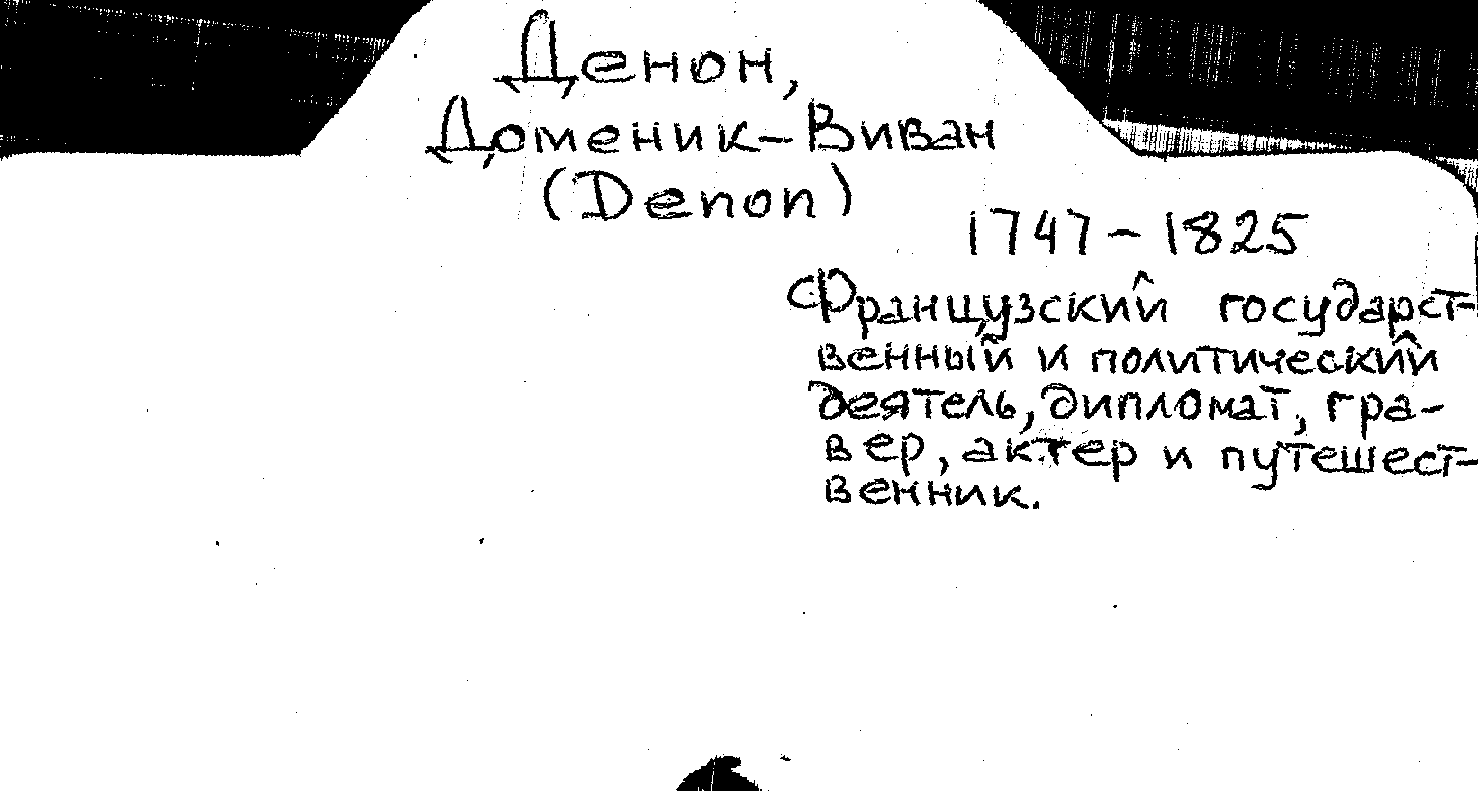 Денон,
Доменик-Виван
(Denon)
1747-1825
Французский государст-
венный и политический
деятель, дипломат, гра-
вер, актер и путешест-
венник.